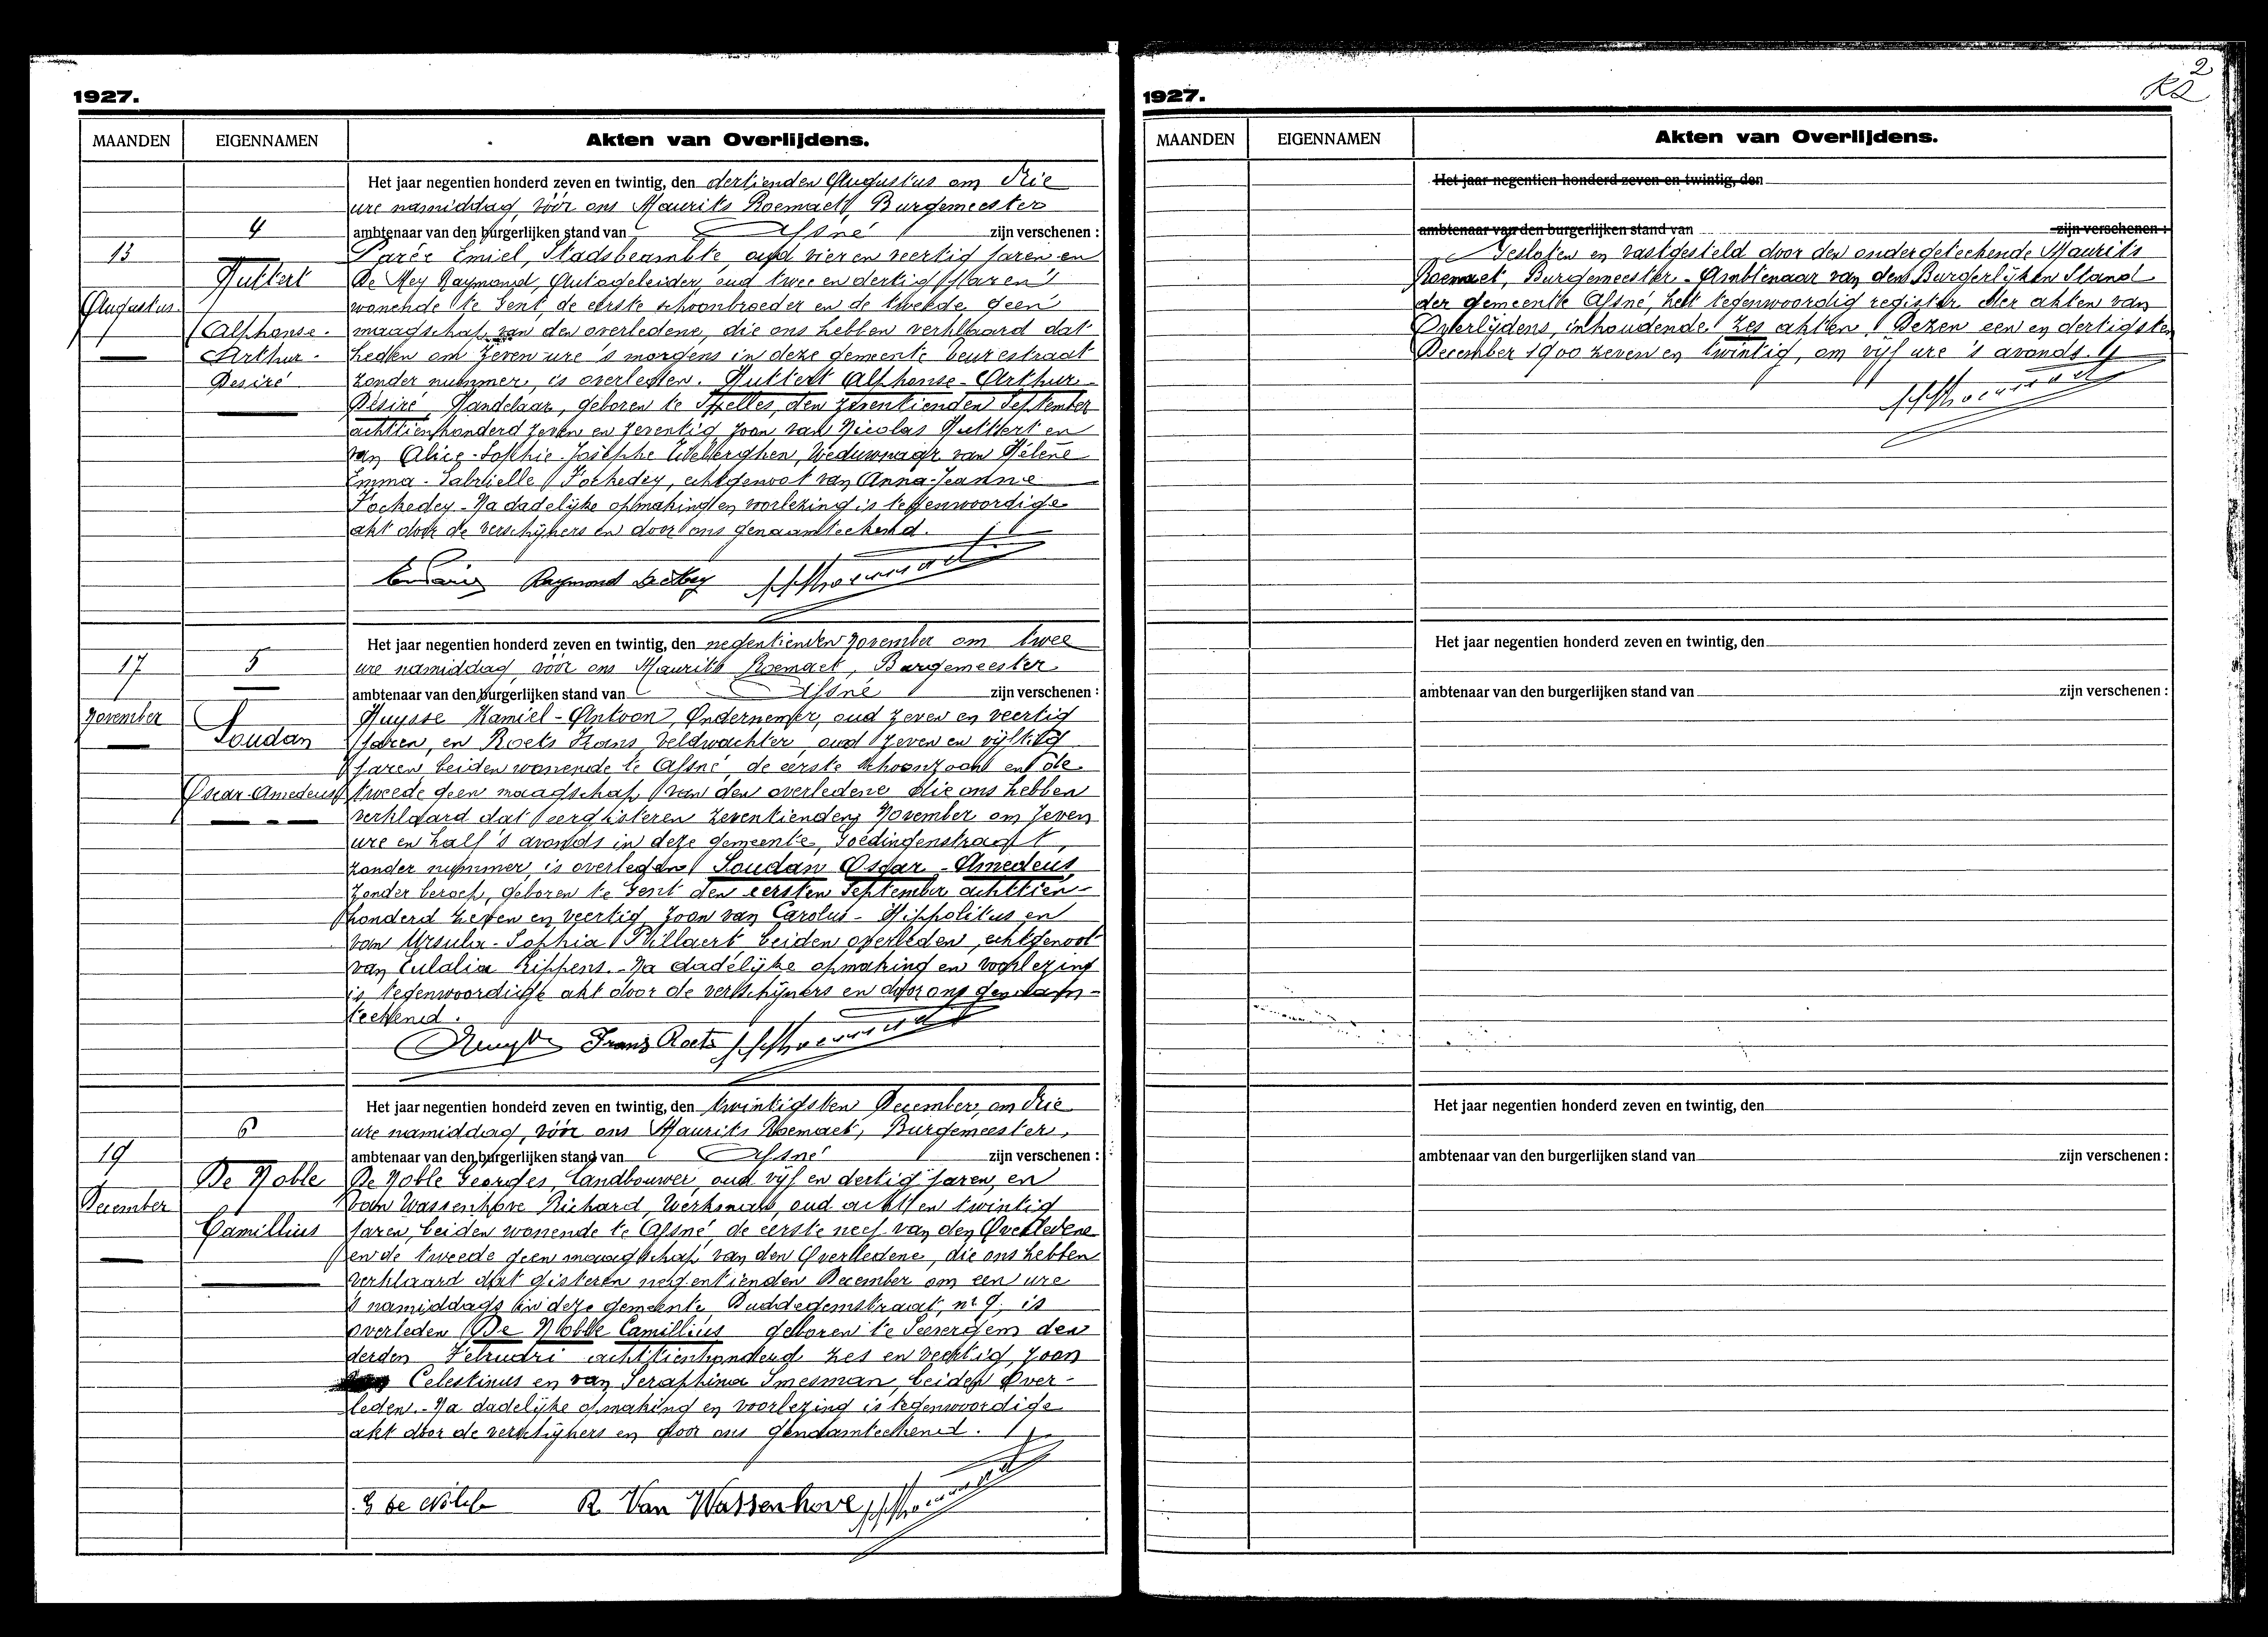 1927.
MAANDEN
EIGENNAMEN
Akten van Overlijdens.
Het jaar negentien honderd zeven en twintig, den dertienden Augustus om drie
ure namiddag, vóór ons Maurits Roemaet, Burgemeester
ambtenaar van den burgerlijken stand van Afsné zijn verschenen :
4
13
Augustus.
Huttert
Alphonse.
Arthur.
Desiré
Parée Emiel, Stadsbeambte, oud vier en veertig jaren en
De Mey Raymond, Autogeleider, oud twee en dertig jaren
wonende te Gent, de eerste schoonbroeder en de tweede geen
maagschap van den overledene, die ons hebben verklaard dat
heden om zeven ure 's morgens in deze gemeente Beurestraat
zonder nummer, is overleden. Huttert Alphonse-Arthur
Desiré, Handelaar, geboren te Ixelles, den zeventienden September
achttienhonderd zeven en zeventig zoon van Nicolas Huttert en
van Alice-Sophie-Josephe, Weduwnaar van Hélène
Emma-Gabrielle Fochedey, echtgenoot van Anna-Jeanne
Fochedey - Na dadelijke opmaking en voorlezing is tegenwoordige
akt door de verschijners en door ons genaamteekend.
Em Parée Raymond De Mey M Roemaet
Het jaar negentien honderd zeven en twintig, den negentienden November om twee
ure namiddag, vóór ons Maurits Roemaet, Burgemeester
ambtenaar van den burgerlijken stand van Afsné zijn verschenen :
17
November
5
Soudan
Oscar-Amedeus
Huysse Kamiel-Antoon, Ondernemer, oud zeven en veertig
jaren, en Roets Frans, Veldwachter, oud zeven en vijftig
jaren, beiden wonende te Afsné, de eerste schoonzoon en de
tweede geen maagschap van den overledene die ons hebben
verklaard dat eergisteren zeventienden November om zeven
ure en half 's avonds in deze gemeente, Goedingenstraat,
zonder nummer, is overleden Soudan Oscar-Amedeus,
zonder beroep, geboren te Gent den eersten September achttien-
honderd zeven en veertig, zoon van Carolus-Hippolitus en
van Ursula-Sophia Willaert, beiden overleden, echtgenoot
van Eulalia Lippens. - Na dadelijke opmaking en voorlezing
is tegenwoordige akt door de verschijners en door ons genaam-
teekend.
Huysse Frans Roets M Roemaet
Het jaar negentien honderd zeven en twintig, den twintigsten December, om drie
ure namiddag, vóór ons Maurits Roemaet, Burgemeester,
ambtenaar van den burgerlijken stand van Afsné zijn verschenen :
6
19
December
De Noble
Camillius
De Noble Georges, Landbouwer, oud vijf en dertig jaren, en
Van Wassenhove Richard, Werkman, oud acht en twintig
jaren, beiden wonende te Afsné, de eerste neef van den Overledene
en de tweede geen maagschap van den Overledene, die ons hebben
verklaard dat gisteren negentienden December om een ure
's namiddags in deze gemeente, Duddegemstraat, nr 9, is
overleden De Noble Camillius geboren te Seevergem den
derden Februari achttienhonderd zes en veertig, zoon
van Celestinus en van Seraphina Smesman, beiden Over-
leden. - Na dadelijke opmaking en voorlezing is tegenwoordige
akt door de verschijners en door ons genaamteekend.
G De Noble R Van Wassenhove M Roemaet
1927.
2
MAANDEN
EIGENNAMEN
Akten van Overlijdens.
Het jaar negentien honderd zeven en twintig, den
ambtenaar van den burgerlijken stand van zijn verschenen :
Gesloten en vastgesteld door den ondergeteekende Maurits
Roemaet, Burgemeester-Ambtenaar van den Burgerlijken Stand
der gemeente Afsné, het tegenwoordig register der akten van
Overlijdens, inhoudende zes akten. Dezen een en dertigsten
December 1900 zeven en twintig, om vijf ure 's avonds.
M Roemaet
Het jaar negentien honderd zeven en twintig, den
ambtenaar van den burgerlijken stand van zijn verschenen :
Het jaar negentien honderd zeven en twintig, den
ambtenaar van den burgerlijken stand van zijn verschenen :